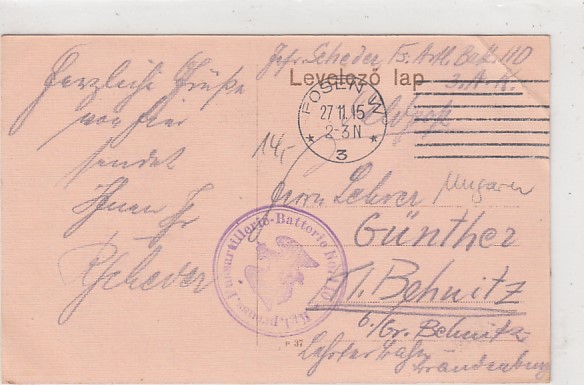 Herzliche Grüße
von hier
sendet
Ihnen Ihr
Scheder
Gefr. Scheder, Fs. Artl. Batt. 110
3. A.K.
Levelező lap
Feldpost
POSEN W
27 11.15
2-3 N
* 3 *
14,-
Ungarn
Herrn Lehrer
Günther
Behnitz
b./Gr. Behnitz
Lehrter Bahn
Brandenburg
Kgl. preuss. Fussartillerie-Batterie No. 110
37